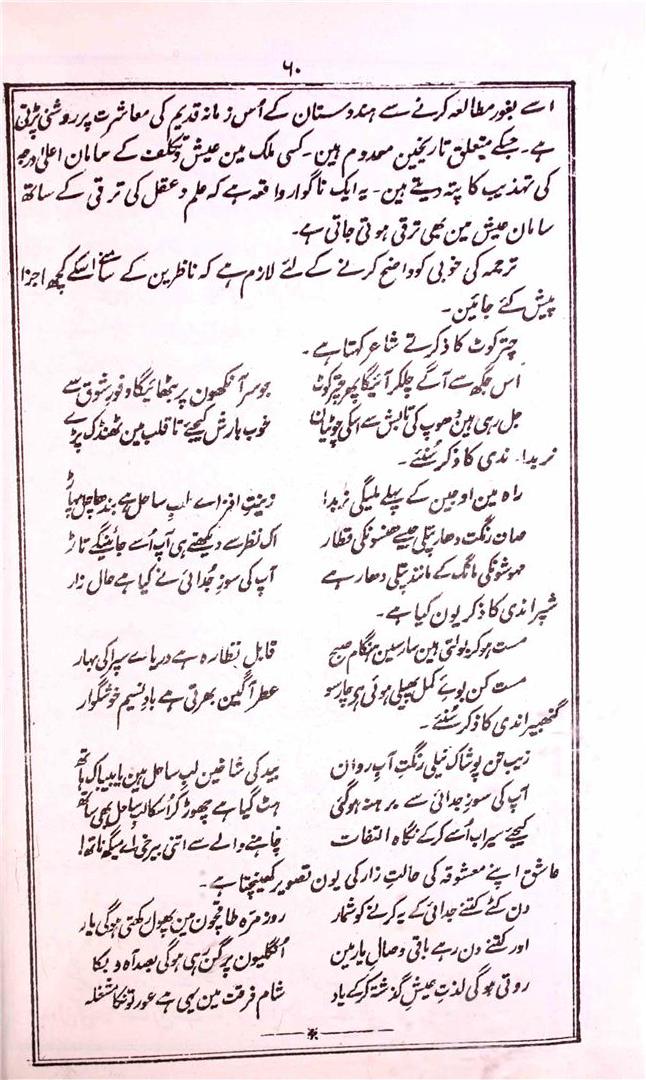 ۶۰
اسے بغور مطالعہ کرنے سے ہندوستان کے اُس زمانہ قدیم کی معاشرت پر روشنی پڑتی
ہے۔ جسکے متعلق تاریخین معدوم ہین۔ کسی ملک مین عیش و تکلف کے سامان اعلیٰ درجہ
کی تہذیب کا پتہ دیتے ہین۔ یہ ایک ناگوار واقعہ ہے کہ علم و عقل کی ترقی کے ساتھ
سامان عیش مین بھی ترقی ہوتی جاتی ہے۔
ترجمہ کی خوبی کو واضح کرنے کے لئے لازم ہے کہ ناظرین کے سامنے اسکے کچھ اجزا
پیش کئے جائین۔
چترکوٹ کا ذکر کرتے شاعر کہتا ہے۔
اس جگہ سے آگے چلکر آئیگا پھر چترکوٹ جو سر آنکھون پر بٹھائیگا وفورِ شوق سے
جل رہی ہین دھوپ کی تابش سے اسکی چوٹیان خوب بارش کیجیے تا قلب مین ٹھنڈک پڑے
نربدا۔ ندی کا ذکر سُنئے۔
راہ مین اوجین کے پہلے ملیگی نربدا زینت افزاے لبِ ساحل ہے بندھیاچل پہاڑ
صاف رنگت دھار پتلی جیسے ہنسونکی قطار اک نظر سے دیکھتے ہی آپ اُسے جائینگے تاڑ
مہوشونکی مانگ کے مانند پتلی دھار ہے آپ کی سوزِ جُدائی نے کیا ہے حال زار
شپرا ندی کا ذکر یون کیا ہے۔
مست ہو کر بولتی ہین سارسین ہنگام صبح قابلِ نظارہ ہے دریاے سپرا کی بہار
مست کن بوے کمل پھیلی ہوئی ہر چار سو عطر آگین بھرتی ہے بادِ نسیم خوشگوار
گنبھیرا ندی کا ذکر سُنئے۔
زیب تن پوشاک نیلی رنگتِ آب روان بید کی شاخین لبِ ساحل ہین یا بیباک ہاتھ
آپ کی سوزِ جدائی سے برہنہ ہو گئی ہٹ گیا ہے چھوڑ کر اُسکا لبِ ساحل بھی ساتھ
کیجیے سیراب اُسے کرکے نگاہ التفات چاہنے والے سے اتنی بیرخی اے میگھ ناتھ!
عاشق اپنے معشوقہ کی حالتِ زار کی یون تصویر کھینچتا ہے۔
دن کٹے کتنے جدائی کے یہ کرنے کو شمار روز مرہ طاقچون مین پھول رکھتی ہوگی یار
اور کتنے دن رہے باقی وصال یار مین اُنگلیون پر گن رہی ہوگی بصد آہ و بکا
روتی ہوگی لذتِ عیش گذشتہ کرکے یاد شام فرقت مین یہی ہے عورتونکا مشغلہ